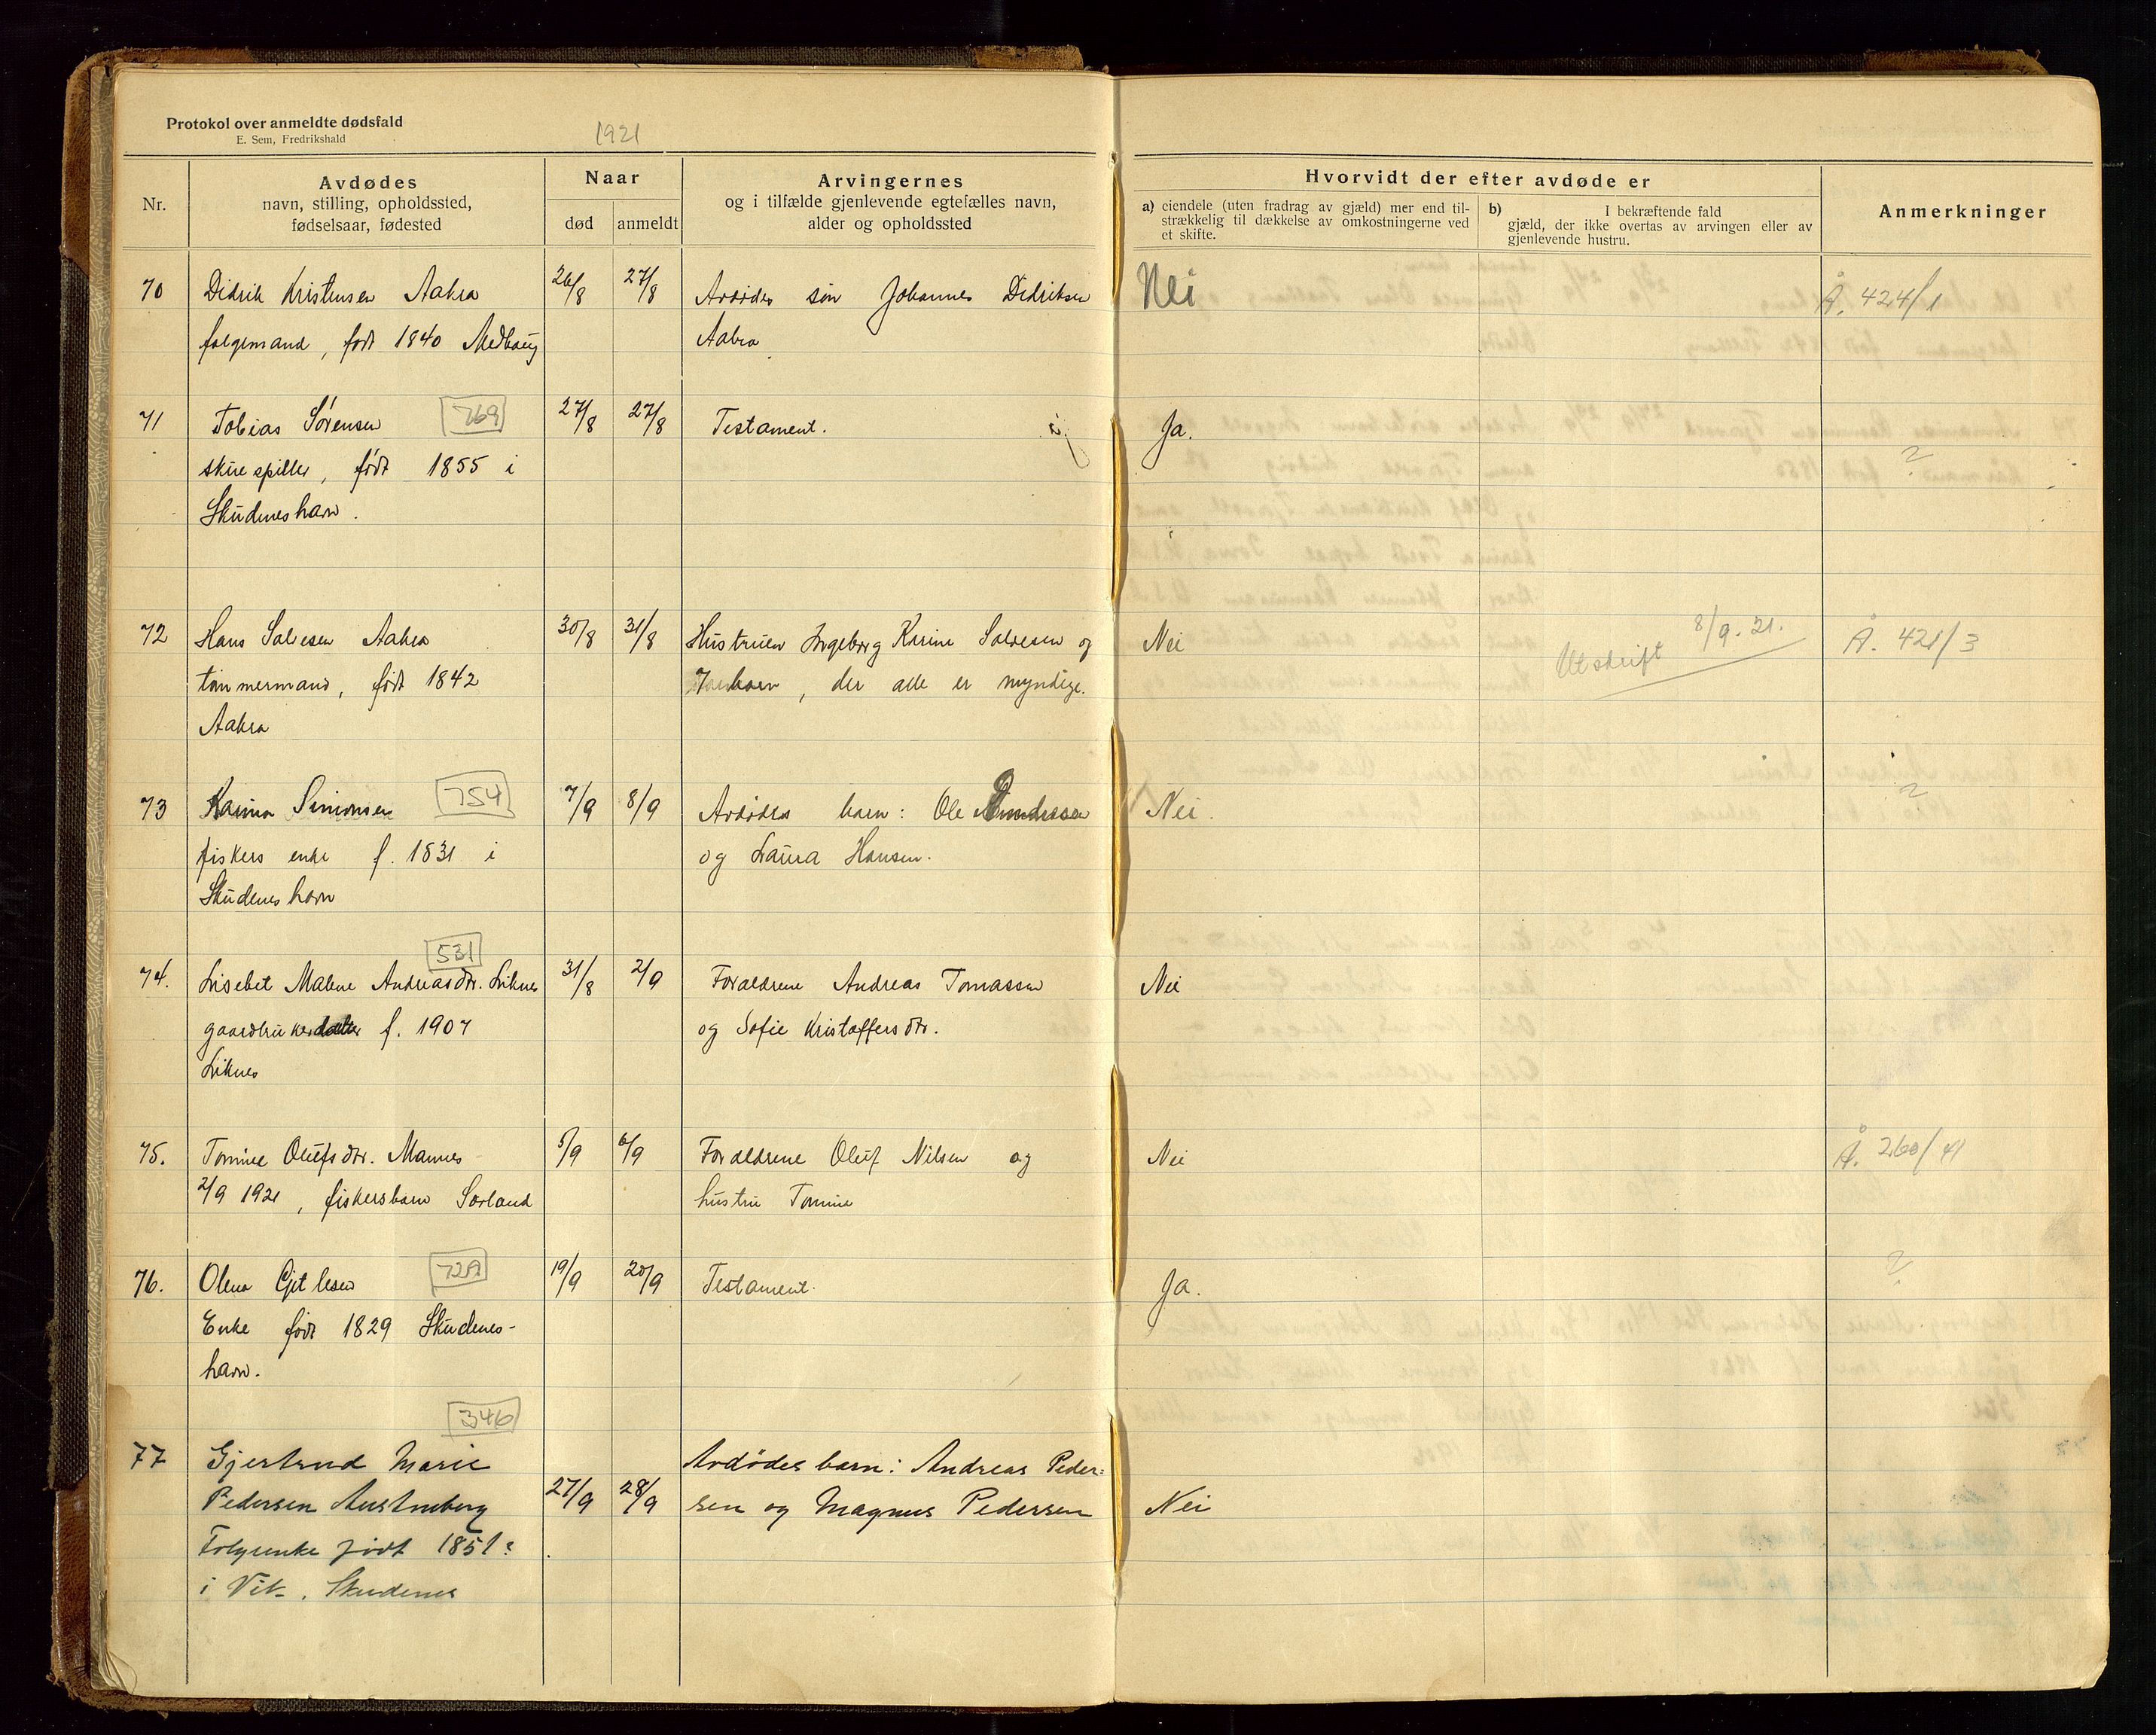 Protokol over anmeldte dødsfald
E. Sem, Fredrikshald
1921
Nr.
Avdødes
navn, stilling, opholdssted,
fødselsaar, fødested
Naar
død
anmeldt
Arvingernes
og i tilfælde gjenlevende egtefælles navn,
alder og opholdssted
Hvorvidt der efter avdøde er
a) eiendele (uten fradrag av gjæld) mer end til-
strækkelig til dækkelse av omkostningerne ved
et skifte.
b) I bekræftende fald
gjæld, der ikke overtas av arvingen eller av
gjenlevende hustru.
Anmerkninger
70 Didrik Kristensen Aakra 26/8 27/8 Avdødes søn Johannes Didriksen Nei Å. 424/1
følgemand, født 1840 Medhaug Aakra
71 Tobias Sørensen 769 27/8 27/8 Testament. Ja.
skuespiller, født 1855 i ?
Skudeneshavn.
72 Hans Salvesen Aakra 30/8 31/8 Hustruen Ingeborg Karine Salvesen og Nei Utskrift 8/9.21. Å. 421/3
tømmermand, født 1842 7 barn, der alle er myndige.
Aakra
73 Karina Simonsen 754 7/9 8/9 Avdødes barn: Ole Nei. ?
fiskers enke f. 1831 i og Laura Hansen.
Skudeneshavn
531
74. Lisebet Malene Andreasdtr. Liknes 31/8 2/9 Forældrene Andreas Tomassen Nei
gaardbrukerdatter f. 1907 og Sofie Kristoffersdtr.
Liknes
75. Tomine Olufsdtr. Mannes 5/9 6/9 Forældrene Oluf Nilsen og Nei Å. 260/41
2/9 1921, fiskersbarn Sørland hustru Tomine
76. Olena Gjetlesen 729 19/9 20/9 Testament. Ja. ?
Enke født 1829 Skudenes-
havn.
346
77 Gjertrud Marie Avdødes barn: Andreas Peder-
Pedersen Austnberg 27/9 28/9 sen og Magnus Pedersen Nei
Følgeenke født 1851
i Vik. Skudenes